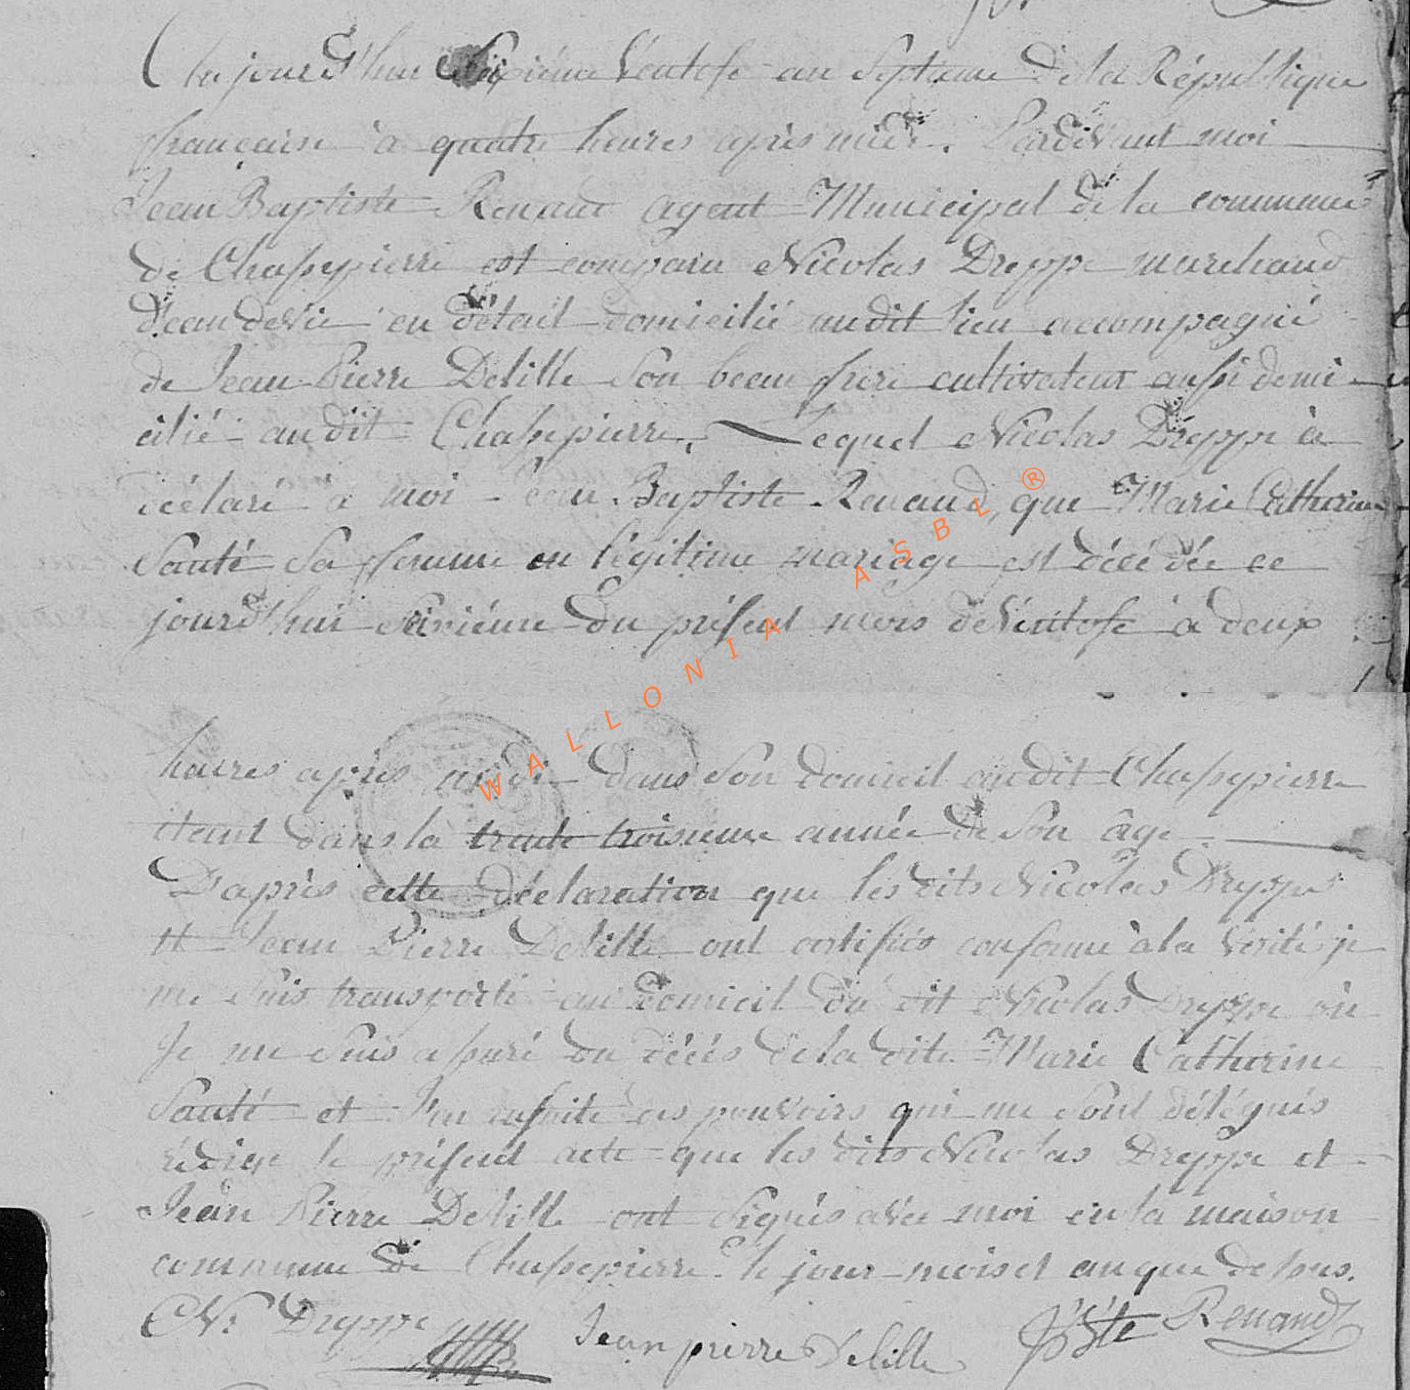 Cejourd'hui Sixiéme Véntose an Septieme dela République
française à quatre heures après midi. Pardevant moi
Jean Baptiste Renaud agent Municipal de la commune
de Chassepierre est comparu Nicolas Dreppe marchand
d'eau devie en détail domicilié audit lieu accompagné
de Jean Pierre Delille Son beau frere cultivateur aussi domi-
cilié audit Chassepierre. Lequel Nicolas Dreppe à
déclaré à moi Jean Baptiste Renaud, que Marie Catherine
Santé Sa femme en légitime mariage est décédée ce
jourd'hui Sixiéme du présent mois de Véntose à deux
heures après midi dans Son domicil audit Chassepierre
étant dans la trente troisieme année de Son âge
D'après cette déclaration que les dits Nicolas Dreppe
et Jean Pierre Delille ont certifiés conforme àla Vérité je
me Suis transporté au domicil du dit Nicolas Dreppe où
Je me Suis assuré du décès dela dite Marie Catherine
Santé et J'en ensuite des pouvoirs qui me Sont délégués
rédigé le présent acte que les dits Nicolas Dreppe et
Jean Pierre Delille ont Signés avec moi en la maison
commune de Chassepierre le jour mois et an que dessus.
Ns Dreppe Jean pierre Delille JBste Renaud
WALLONIA ASBL ®